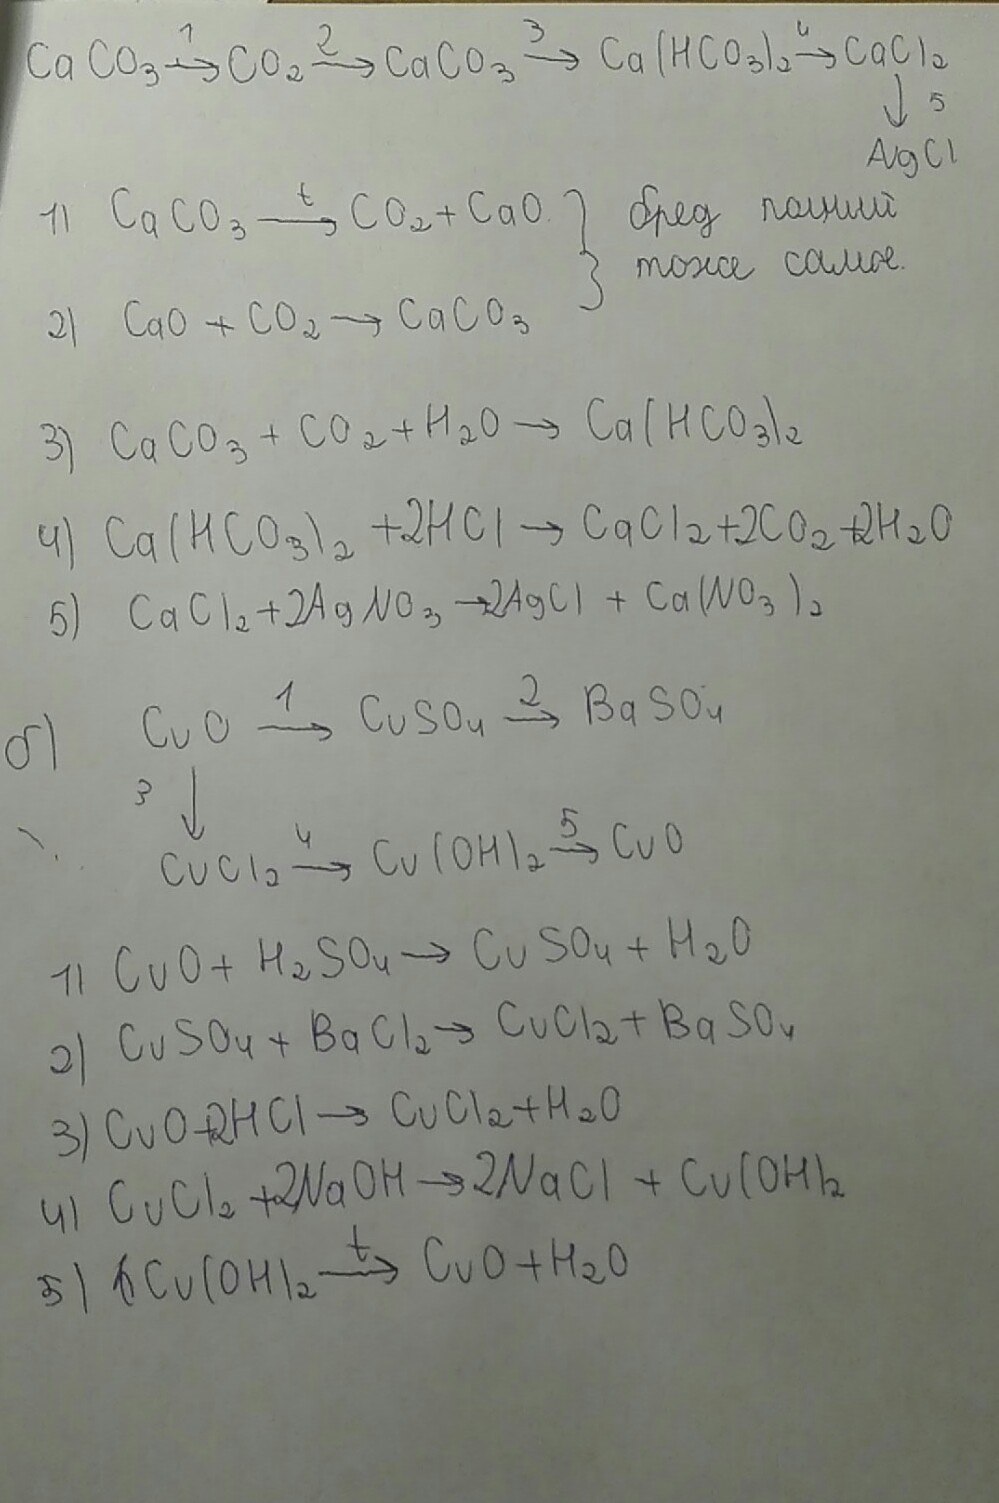 CaCO₃ →¹ CO₂ →² CaCO₃ →³ Ca(HCO₃)₂ →⁴ CaCl₂
↓ 5
AgCl
1) CaCO₃ →ᵗ CO₂ + CaO } бред
тоже самое.
2) CaO + CO₂ → CaCO₃
3) CaCO₃ + CO₂ + H₂O → Ca(HCO₃)₂
4) Ca(HCO₃)₂ + 2HCl → CaCl₂ + 2CO₂ + 2H₂O
5) CaCl₂ + 2AgNO₃ → 2AgCl + Ca(NO₃)₂
б) CuO →¹ CuSO₄ →² BaSO₄
3 ↓
CuCl₂ →⁴ Cu(OH)₂ →⁵ CuO
1) CuO + H₂SO₄ → CuSO₄ + H₂O
2) CuSO₄ + BaCl₂ → CuCl₂ + BaSO₄
3) CuO + 2HCl → CuCl₂ + H₂O
4) CuCl₂ + 2NaOH → 2NaCl + Cu(OH)₂
5) Cu(OH)₂ →ᵗ CuO + H₂O